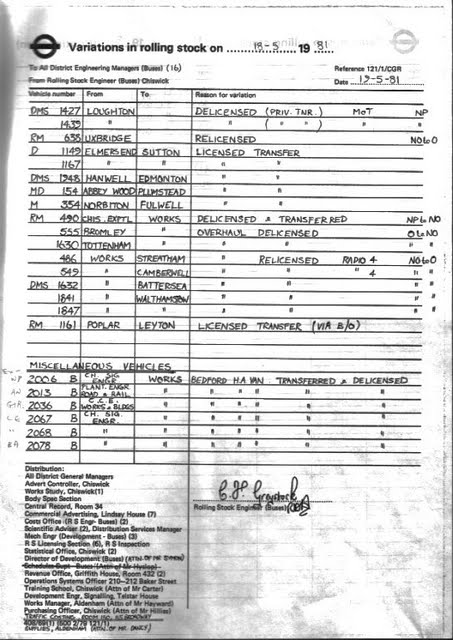 Variations in rolling stock on 13-5 1981
To All District Engineering Managers (Buses) (16) Reference 121/1/CGR
From Rolling Stock Engineer (Buses) Chiswick Date 13-5-81
Vehicle number From To Reason for variation
DMS 1427 LOUGHTON DELICENSED (PRIV. TNR.) MOT NP
1439 " " ( " " ) " "
RM 635 UXBRIDGE RELICENSED NO to O
D 1149 ELMERS END SUTTON LICENSED TRANSFER
1167 " " " " "
DMS 1248 HANWELL EDMONTON " "
MD 154 ABBEY WOOD PLUMSTEAD " "
M 354 NORBITON FULWELL " "
RM 490 CHIS. EXPTL WORKS DELICENSED & TRANSFERRED NP to NO
555 BROMLEY " OVERHAUL DELICENSED O to NO
1630 TOTTENHAM " " " " "
486 WORKS STREATHAM " RELICENSED RADIO 4 NO to O
549 " CAMBERWELL " " " 4 " "
DMS 1632 " BATTERSEA " " " "
1841 " WALTHAMSTOW " " " "
1847 " " " " " "
RM 1161 POPLAR LEYTON LICENSED TRANSFER (VIA B/O)
MISCELLANEOUS VEHICLES
2006 B CH. SIG. ENGR WORKS BEDFORD HA VAN TRANSFERRED & DELICENSED
2013 B PLANT. ENGR ROAD & RAIL " " " " " " "
2036 B C.C.E. WORKS & BLDGS " " " " " " "
2067 B CH. SIG. ENGR. " " " " " " "
2068 B " " " " " " " "
2078 B " " " " " " " "
Distribution:
All District General Managers
Advert Controller, Chiswick
Works Study, Chiswick(1)
Body Spec Section
Central Record, Room 34
Commercial Advertising, Lindsay House (7)
Costs Office (R S Engr- Buses) (2)
Scientific Adviser (2), Distribution Services Manager
Mech Engr (Development - Buses) (3)
R S Licensing Section (6), R S Inspection
Statistical Office, Chiswick (2)
Director of Development (Buses) (ATTN. OF MR
Schedules Supt - Buses (Attn of Mr Hyslop)
Revenue Office, Griffith House, Room 432 (2)
Operations Systems Officer 210-212 Baker Street
Training School, Chiswick (Attn of Mr Carter)
Development Engr, Signalling, Telstar House
Works Manager, Aldenham (Attn of Mr Hayward)
Purchasing Officer, Chiswick (Attn of Mr Hillier)
TRAFFIC CONTROL ROOM 55 BROADWAY
SUPPLIES, ALDENHAM (ATTN. OF MR
Rolling Stock Engineer (Buses)